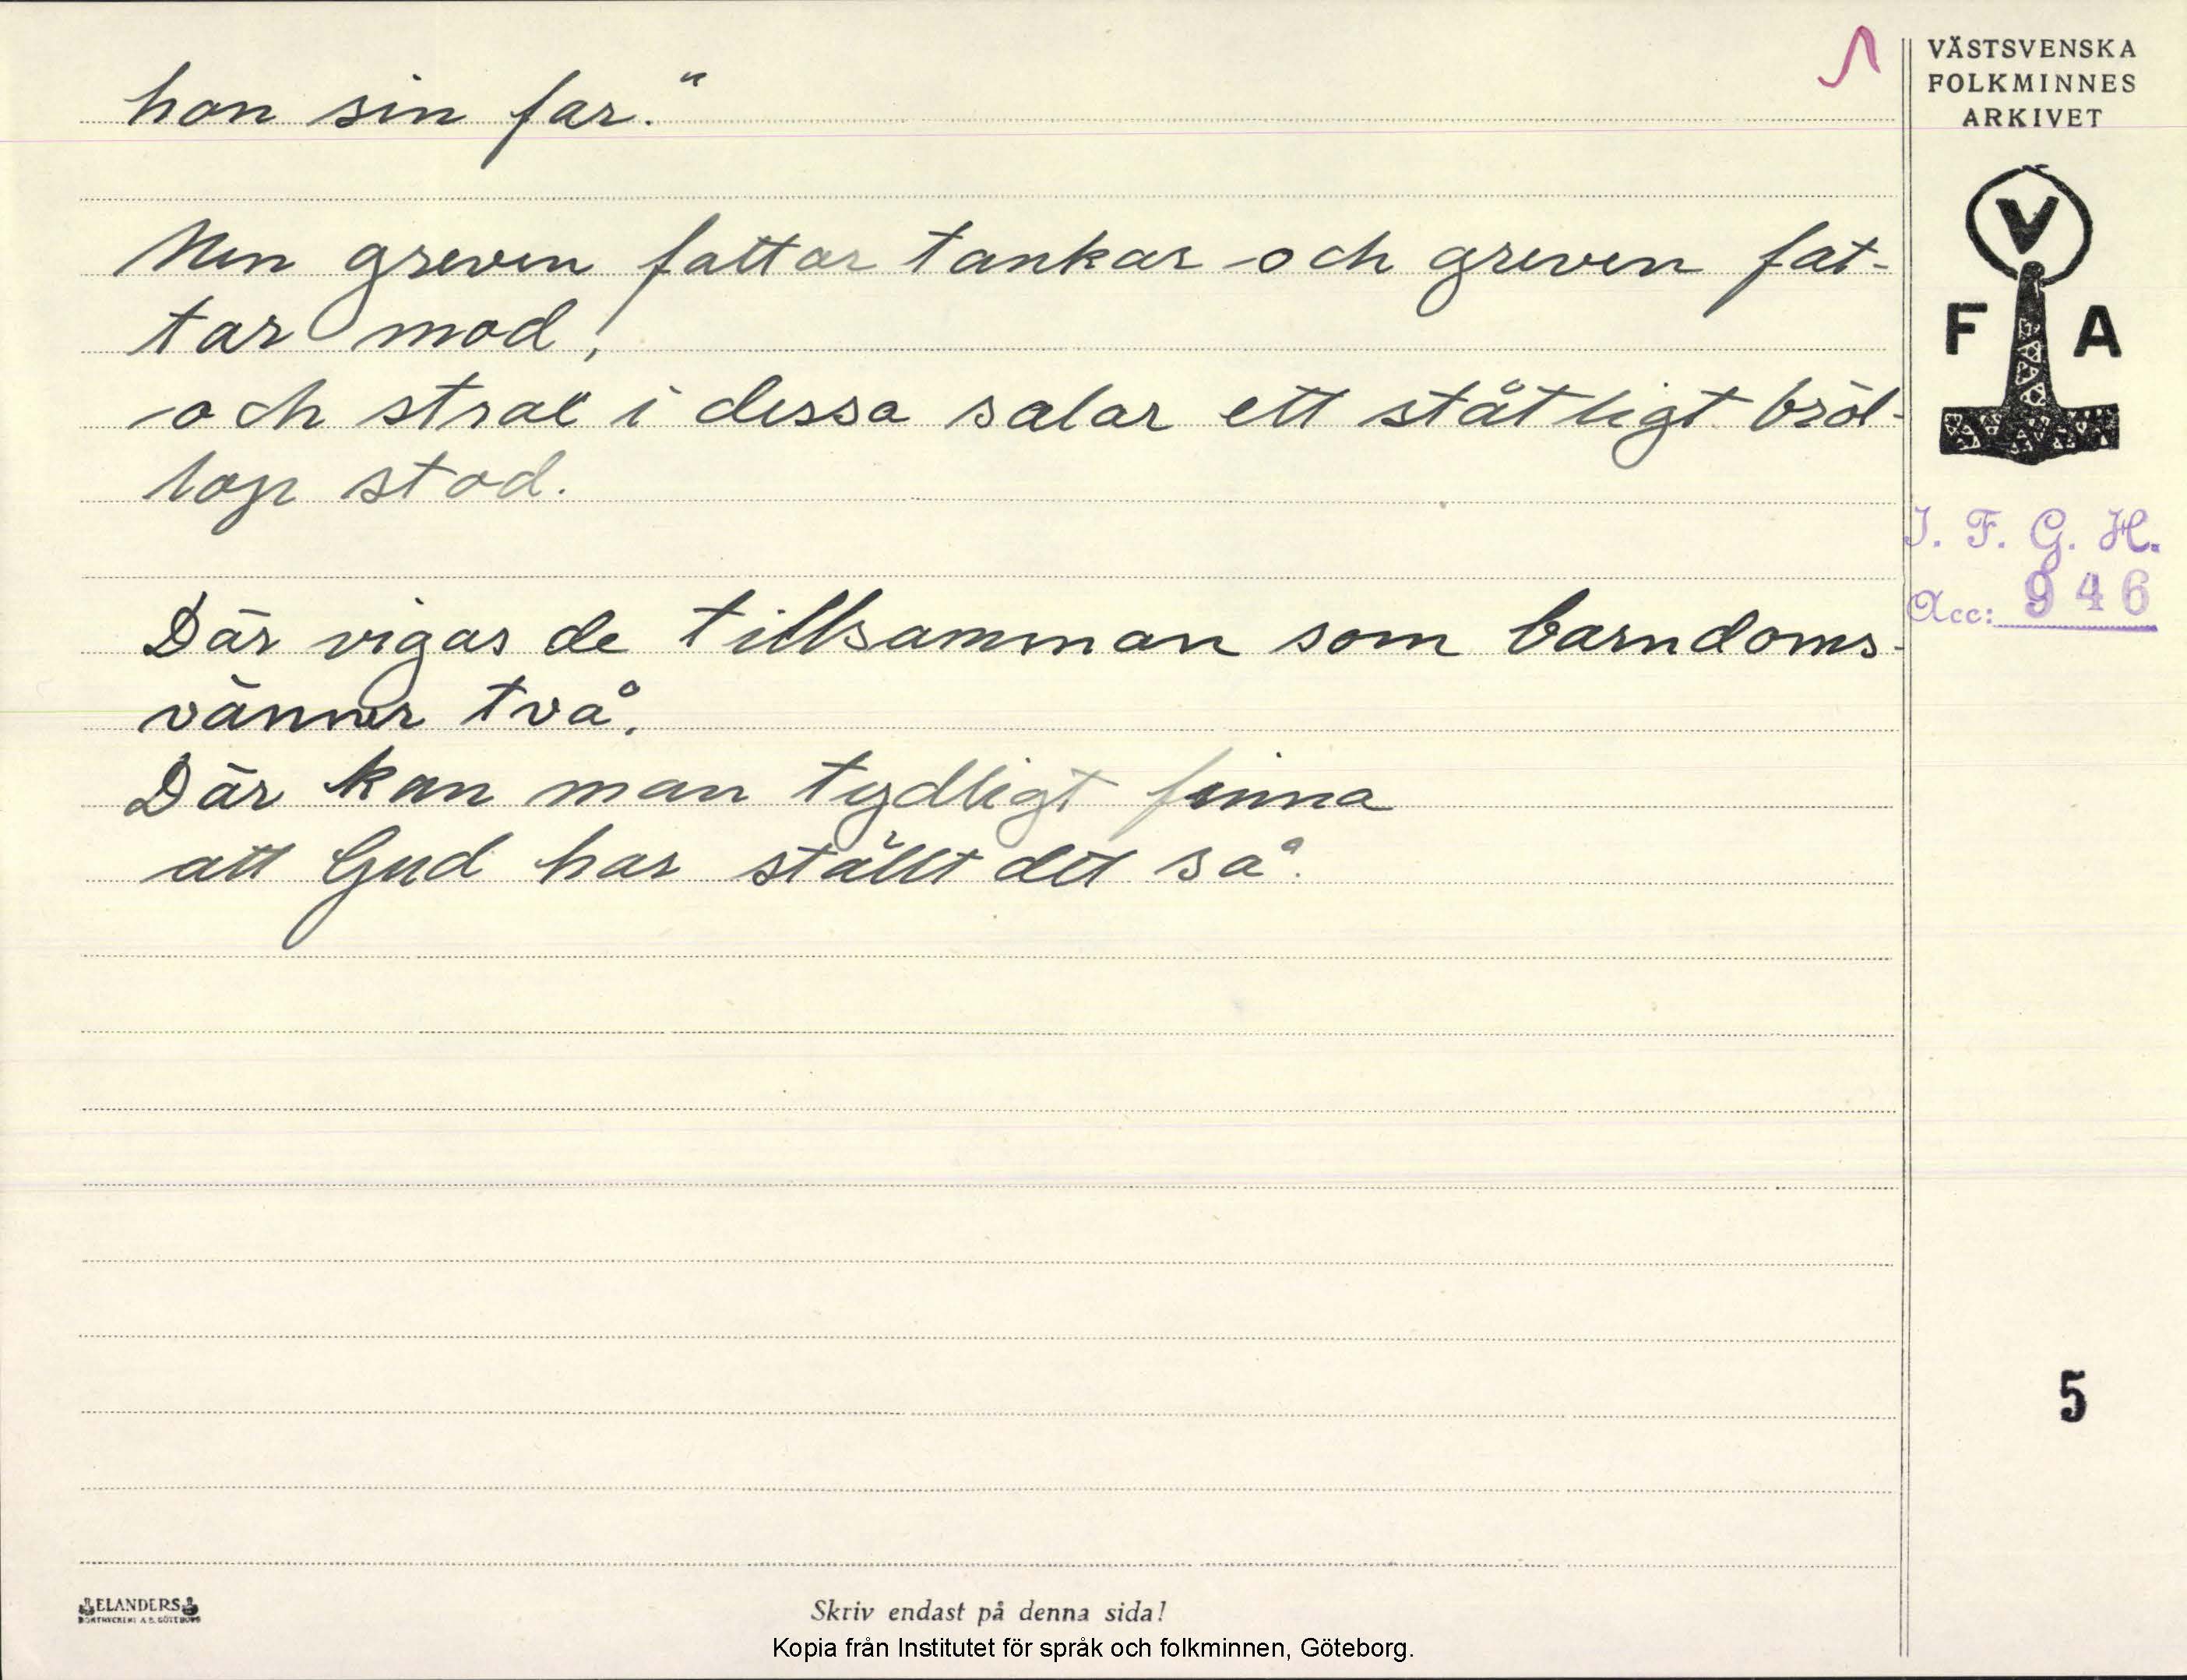 hon sin far."
Men greven fattar tankar och greven fat-
tar mod,
och strax i dessa salar ett ståtligt bröl-
lop stod.
Där vigas de tillsamman som barndoms-
vänner två.
Där kan man tydligt finna
att Gud har ställt det så.
VÄSTSVENSKA
FOLKMINNES
ARKIVET
V
F A
I. F. G. H.
Acc: 946
5
ELANDERS
BOKTRYCKERI A.B. GÖTEBORG
Skriv endast på denna sida!
Kopia från Institutet för språk och folkminnen, Göteborg.